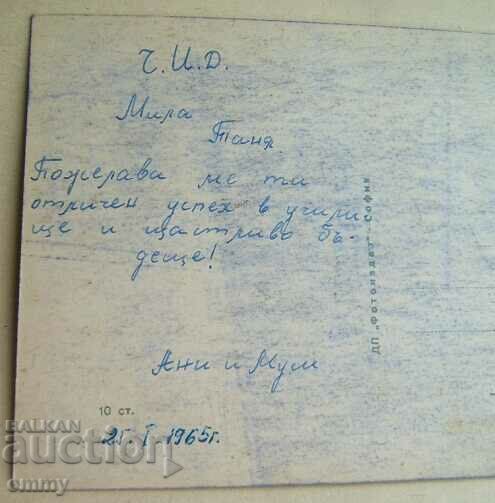 Ч.И.Д.
Мила
Таня
Пожелава ме ти
отличен успех в учили
ще и щастливо бъ-
деще!
Ани и Мум
10 ст.
25.I.1965г.
ДП „Фотоиздат" - София
BALKAN
auction
emmy